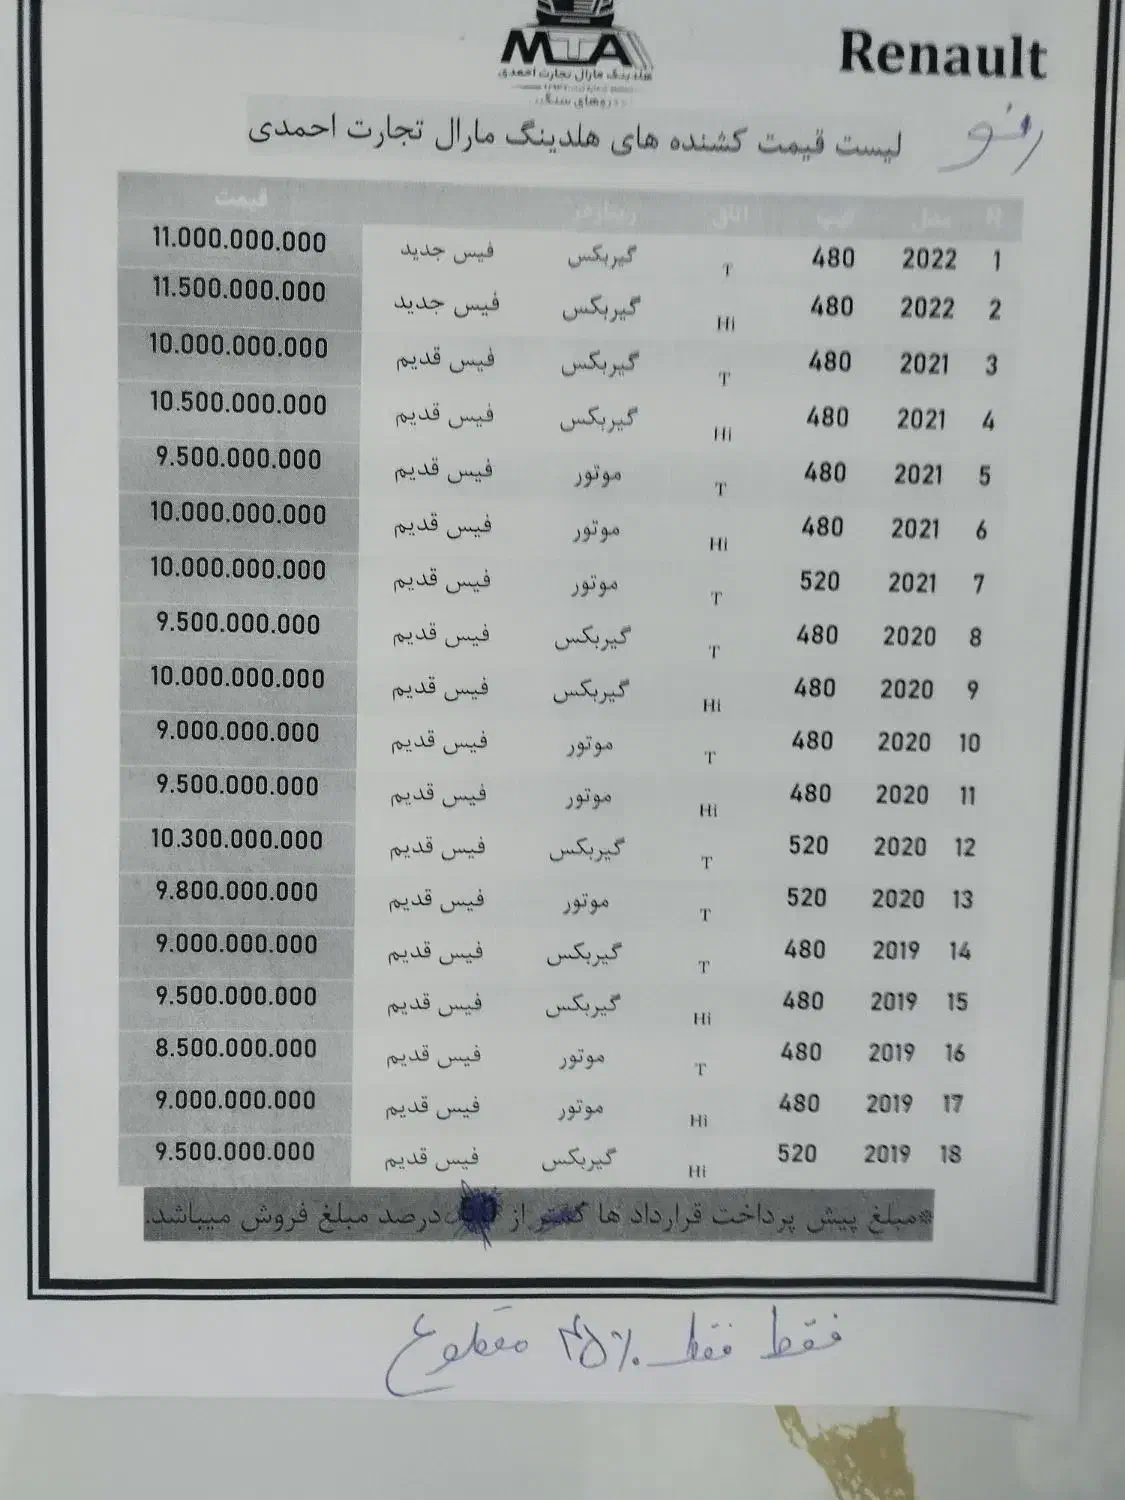 MTA
هلدینگ مارال تجارت احمدی
Renault
رنو
لیست قیمت کشنده های هلدینگ مارال تجارت احمدی
R مدل تیپ اتاق ریتاردر قیمت
1 2022 480 T گیربکس فیس جدید 11.000.000.000
2 2022 480 Hi گیربکس فیس جدید 11.500.000.000
3 2021 480 T گیربکس فیس قدیم 10.000.000.000
4 2021 480 Hi گیربکس فیس قدیم 10.500.000.000
5 2021 480 T موتور فیس قدیم 9.500.000.000
6 2021 480 Hi موتور فیس قدیم 10.000.000.000
7 2021 520 T موتور فیس قدیم 10.000.000.000
8 2020 480 T گیربکس فیس قدیم 9.500.000.000
9 2020 480 Hi گیربکس فیس قدیم 10.000.000.000
10 2020 480 T موتور فیس قدیم 9.000.000.000
11 2020 480 Hi موتور فیس قدیم 9.500.000.000
12 2020 520 T گیربکس فیس قدیم 10.300.000.000
13 2020 520 T موتور فیس قدیم 9.800.000.000
14 2019 480 T گیربکس فیس قدیم 9.000.000.000
15 2019 480 Hi گیربکس فیس قدیم 9.500.000.000
16 2019 480 T موتور فیس قدیم 8.500.000.000
17 2019 480 Hi موتور فیس قدیم 9.000.000.000
18 2019 520 Hi گیربکس فیس قدیم 9.500.000.000
*مبلغ پیش پرداخت قرارداد ها کمتر از درصد مبلغ فروش میباشد.
فقط فقط ۴۵٪ مقطوع